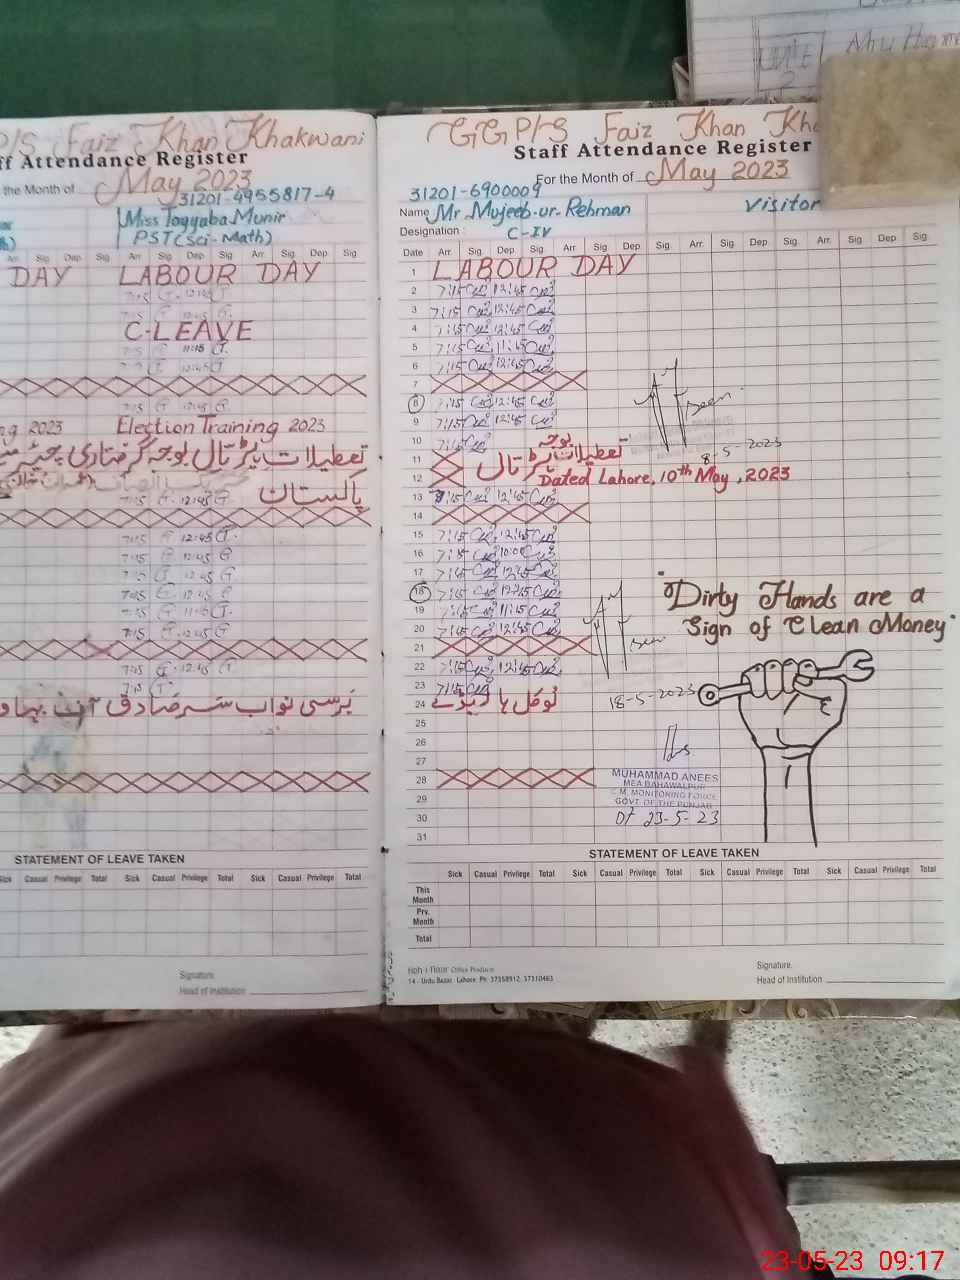 P/S Faiz Khan Khakwani
ff Attendance Register
the Month of May 2023
31201-4955817-4
Miss Tayyaba Munir
PST (Sci-Math)
Arr. Sig. Dep Sig. Arr. Sig. Dep Sig. Arr. Sig. Dep Sig.
DAY LABOUR DAY
7:15 12:45
7:15 12:45
C-LEAVE
7:15 11:15
7:15 12:45
7:15 12:45
ng 2023 Election Training 2023
تعطیلات ہڑتال بوجہ گرفتاری چیئر
تحریک انصاف عمران خان
پاکستان
7:15 12:45
7:15 12:45
7:15 12:45
7:15 12:45
7:15 12:45
7:15 11:15
7:15 12:45
7:15 12:45
7:15
برسی نواب سر صادق آف بہاو
STATEMENT OF LEAVE TAKEN
Sick Casual Privilege Total Sick Casual Privilege Total Sick Casual Privilege Total
Signature.
Head of Institution
GGP/S Faiz Khan Kha
Staff Attendance Register
For the Month of May 2023
31201-6900009
Name Mr Mujeeb-ur-Rehman Visitor
Designation : C-IV
Date Arr. Sig. Dep Sig. Arr. Sig Dep Sig. Arr. Sig. Dep Sig. Arr. Sig. Dep Sig.
1 LABOUR DAY
2 7:15 12:45
3 7:15 12:45
4 7:15 12:45
5 7:15 11:15
6 7:15 12:45
7
8 7:15 12:45
9 7:15 12:45 Seen
10 7:15 8-5-2023
11 تعطیلات بوجہ ہڑتال
12 Dated Lahore, 10th May, 2023
13 7:15 12:45
14
15 7:15 12:45
16 7:15 10:00
17 7:15 12:45
18 7:15 12:45
19 7:15 11:15
20 7:15 12:45
"Dirty Hands are a
Sign of Clean Money"
21 Seen
22 7:15 12:45
23 7:15
18-5-2023
24 لوکل ہالیڈے
25
26
27
28
29
30
31
MUHAMMAD ANEES
MEA BAHAWALPUR
C.M. MONITORING FORCE
GOVT OF THE PUNJAB
Dt 23-5-23
STATEMENT OF LEAVE TAKEN
Sick Casual Privilege Total Sick Casual Privilege Total Sick Casual Privilege Total Sick Casual Privilege Total
This Month
Prv. Month
Total
Koh-i-Noor Office Products
14 - Urdu Bazar, Lahore. Ph: 37358912, 37310463
Signature.
Head of Institution
23-05-23 09:17